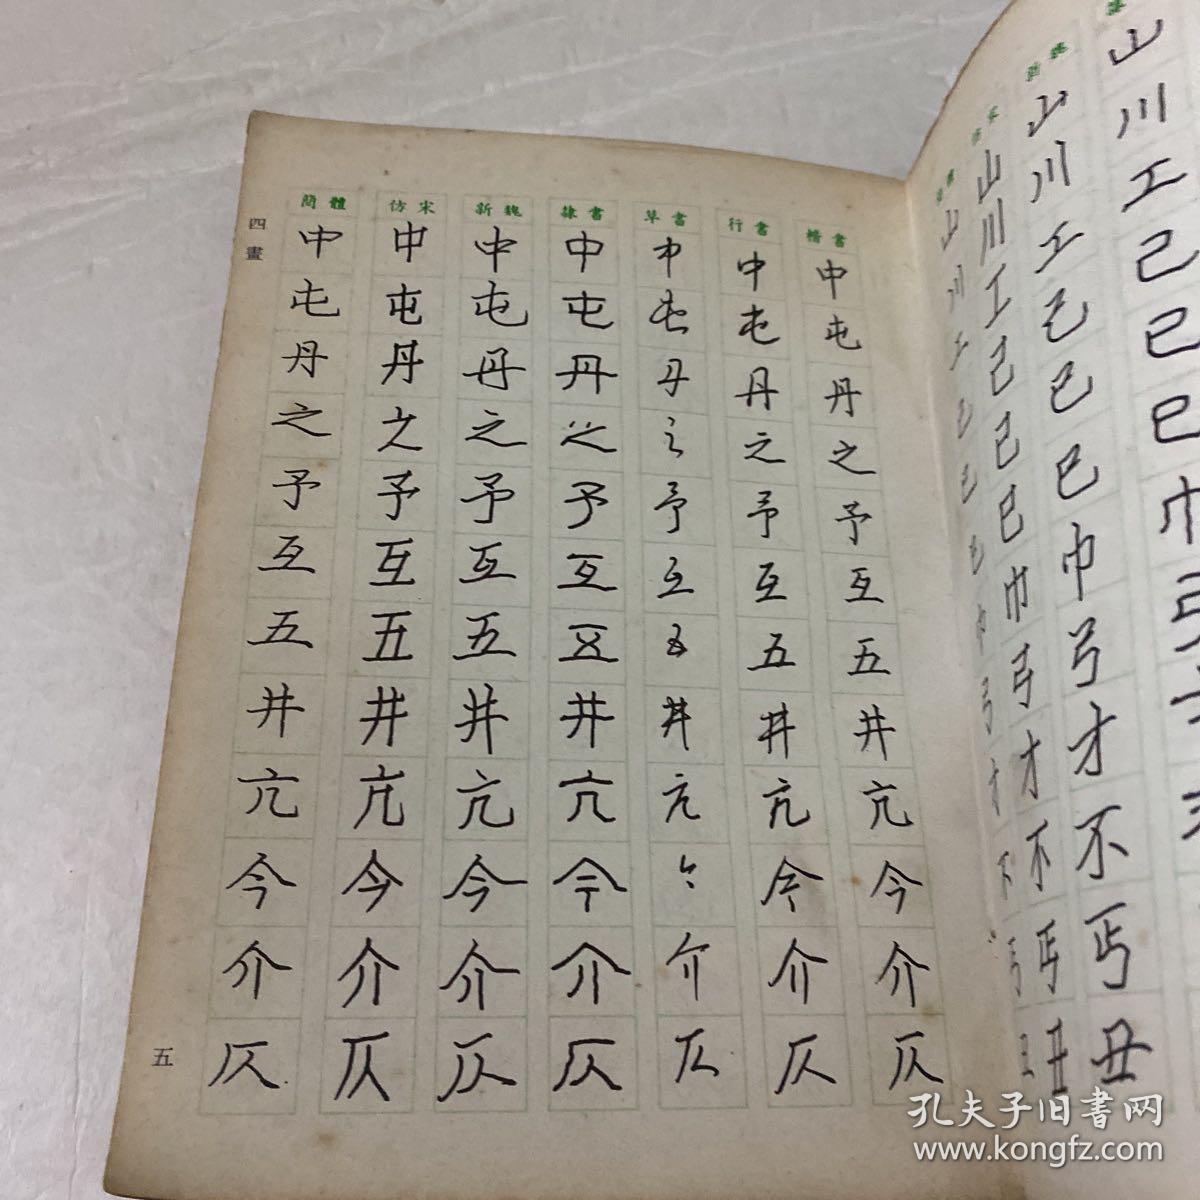 四畫
楷書 中屯丹之予互五井亢今介仄
行書 中屯丹之予互五井亢今介仄
草書 中屯丹之予互五井亢今介仄
隸書 中屯丹之予互五井亢今介仄
新魏 中屯丹之予互五井亢今介仄
仿宋 中屯丹之予互五井亢今介仄
簡體 中屯丹之予互五井亢今介仄
五
山川工己已巳巾弓
新魏 山川工己已巳巾弓才不丐丑
仿宋 山川工己已巳巾弓才不丐丑
簡體 山川工己已巳巾弓才不丐丑
孔夫子旧書网
www.kongfz.com